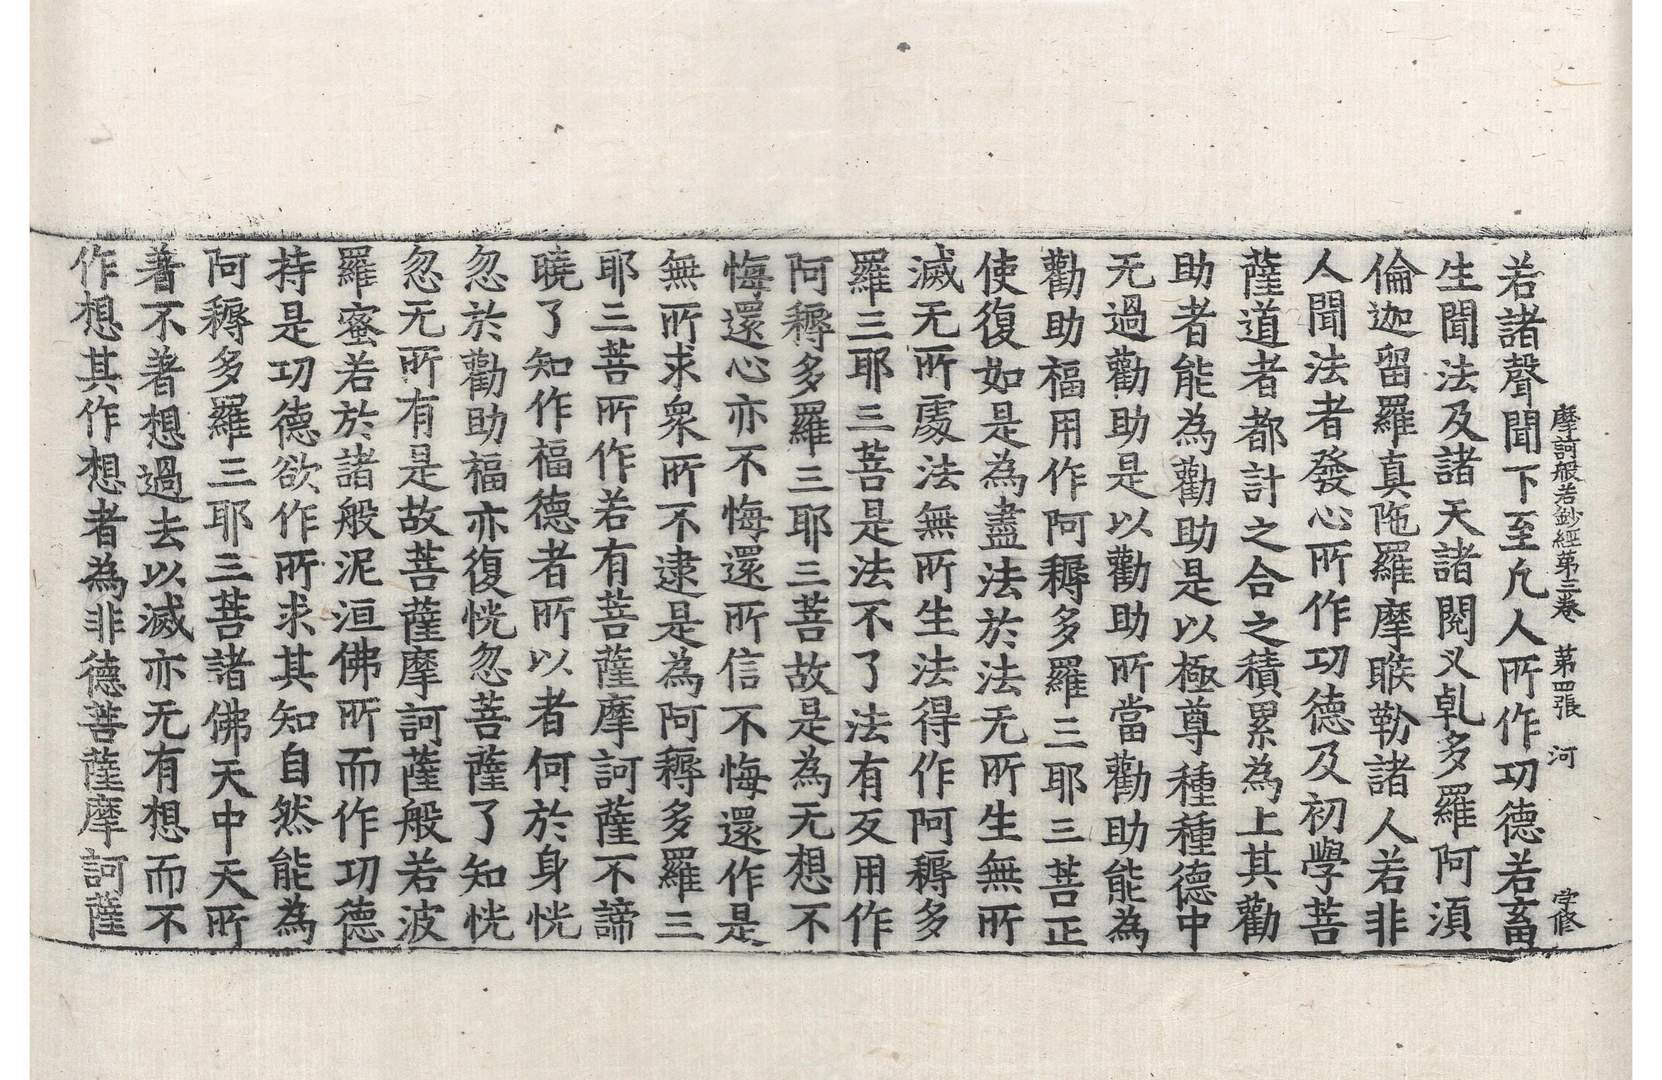 摩訶般若鈔經第三卷　第四張　河　字修
若諸聲聞下至凢人所作功德若畜
生聞法及諸天諸閱叉乹多羅阿須
倫迦留羅真陁羅摩睺勒諸人若非
人聞法者發心所作功德及初學菩
薩道者都計之合之積累為上其勸
助者能為勸助是以極尊種種德中
无過勸助是以勸助所當勸助能為
勸助福用作阿耨多羅三耶三菩正
使復如是為盡法於法无所生無所
滅无所處法無所生法得作阿耨多
羅三耶三菩是法不了法有反用作
阿耨多羅三耶三菩故是為无想不
悔還心亦不悔還所信不悔還作是
無所求衆所不逮是為阿耨多羅三
耶三菩所作若有菩薩摩訶薩不諦
曉了知作福德者所以者何於身恍
忽於勸助福亦復恍忽菩薩了知恍
忽无所有是故菩薩摩訶薩般若波
羅蜜若於諸般泥洹佛所而作功德
持是功德欲作所求其知自然能為
阿耨多羅三耶三菩諸佛天中天所
著不著想過去以滅亦无有想而不
作想其作想者為非德菩薩摩訶薩